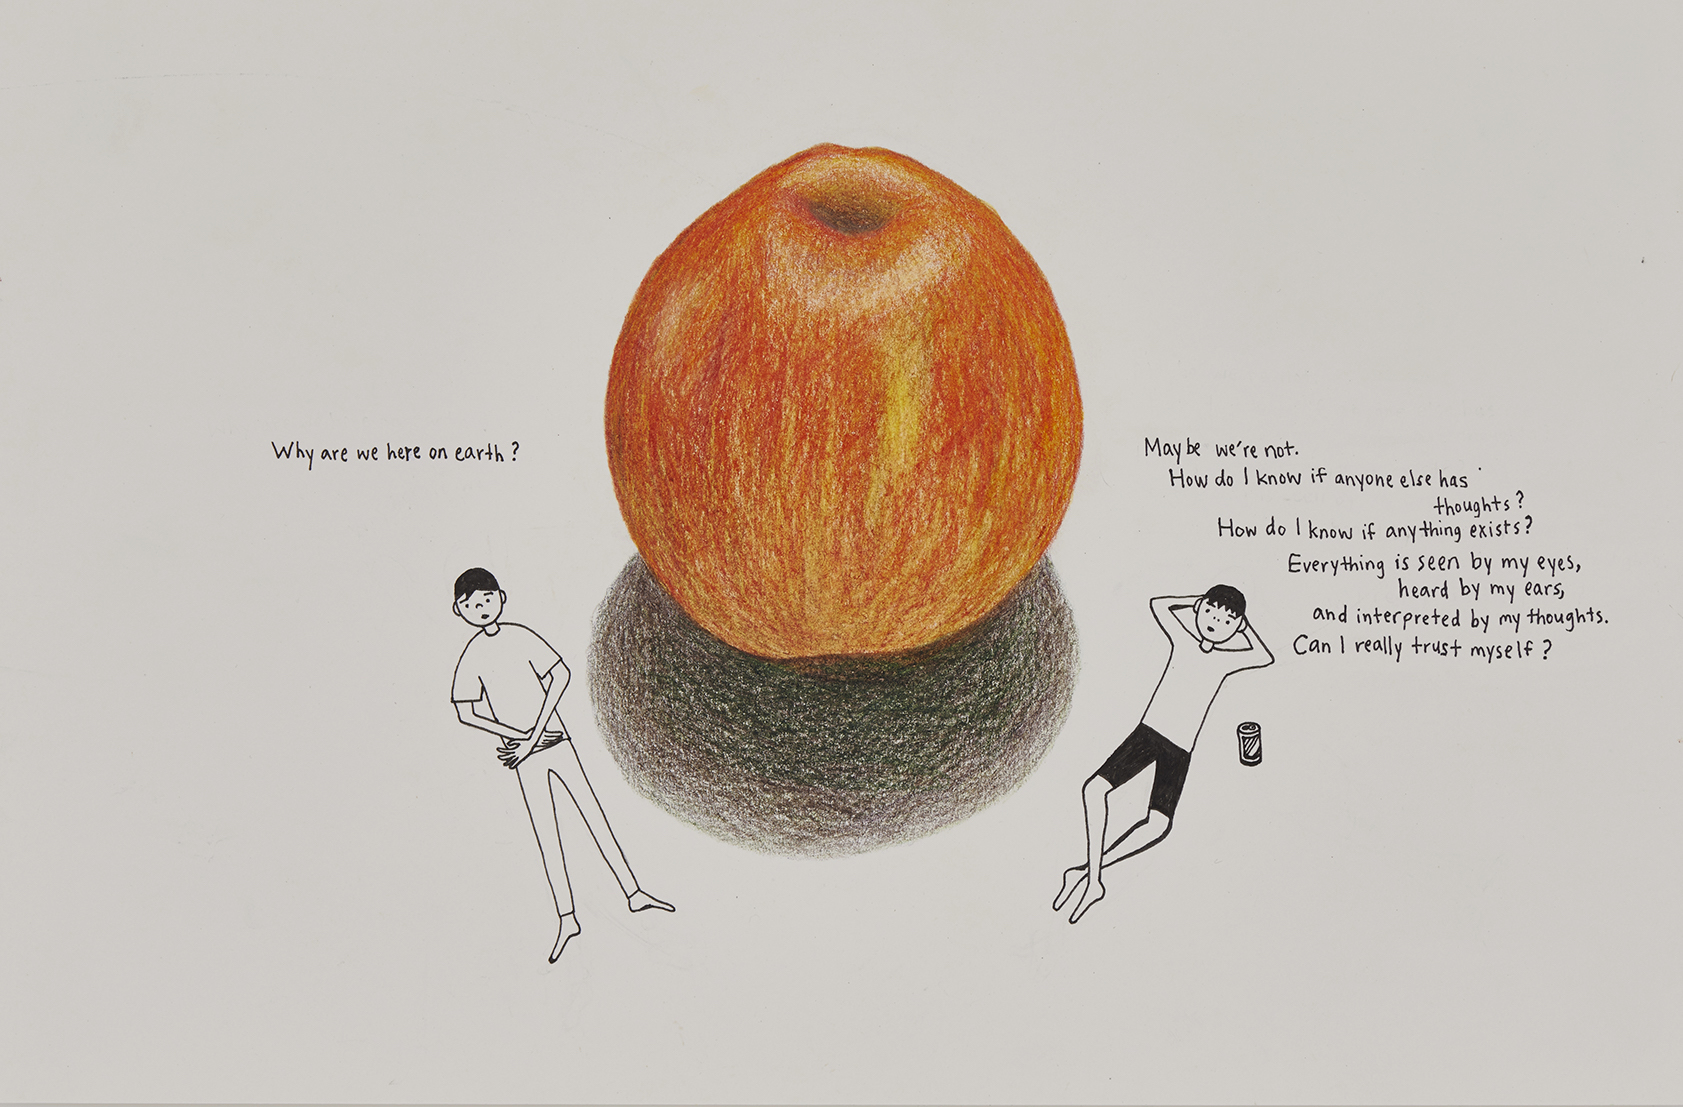 Why are we here on earth?
Maybe we're not.
How do I know if anyone else has
thoughts?
How do I know if anything exists?
Everything is seen by my eyes,
heard by my ears,
and interpreted by my thoughts.
Can I really trust myself?